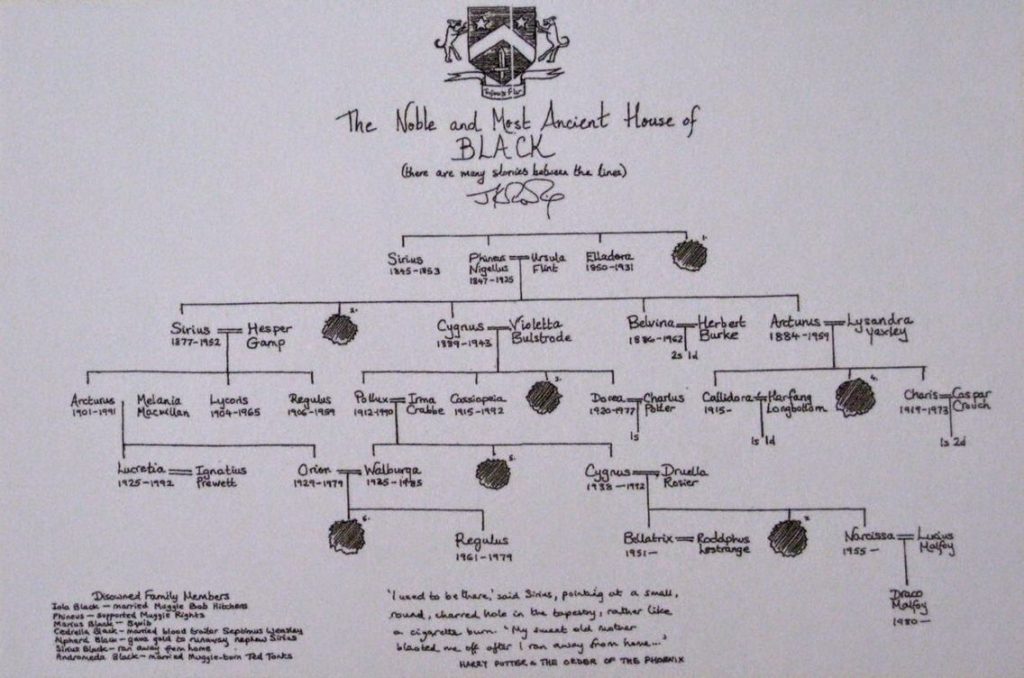 Toujours Pur
The Noble and Most Ancient House of
BLACK
(there are many stories between the lines)
JKRowling
1.
Sirius
1845-1853
Phineas
Nigellus
1847-1925
Ursula
Flint
Elladora
1850-1931
2.
Sirius
1877-1952
Hesper
Gamp
Cygnus
1889-1943
Violetta
Bulstrode
Belvina
1886-1962
Herbert
Burke
2s 1d
Arcturus
1884-1959
Lysandra
Yaxley
3.
4.
Arcturus
1901-1991
Melania
Macmillan
Lycoris
1904-1965
Regulus
1906-1959
Pollux
1912-1990
Irma
Crabbe
Cassiopeia
1915-1992
Dorea
1920-1977
Charlus
Potter
1s
Callidora
1915-
Harfang
Longbottom
1s 1d
Charis
1919-1973
Caspar
Crouch
1s 2d
5.
Lucretia
1925-1992
Ignatius
Prewett
Orion
1929-1979
Walburga
1925-1985
Cygnus
1938-1992
Druella
Rosier
6.
Regulus
1961-1979
Bellatrix
1951-
Rodolphus
Lestrange
Narcissa
1955-
Lucius
Malfoy
Draco
Malfoy
1980-
Disowned Family Members
Isla Black - married Muggle Bob Hitchens
Phineas - supported Muggle Rights
Marius Black - Squib
Cedrella Black - married blood traitor Septimus Weasley
Alphard Black - gave gold to runaway nephew Sirius
Sirius Black - ran away from home
Andromeda Black - married Muggle-born Ted Tonks
'I used to be there,' said Sirius, pointing at a small,
round, charred hole in the tapestry, rather like
a cigarette burn. 'My sweet old mother
blasted me off after I ran away from home...'
HARRY POTTER & THE ORDER OF THE PHOENIX